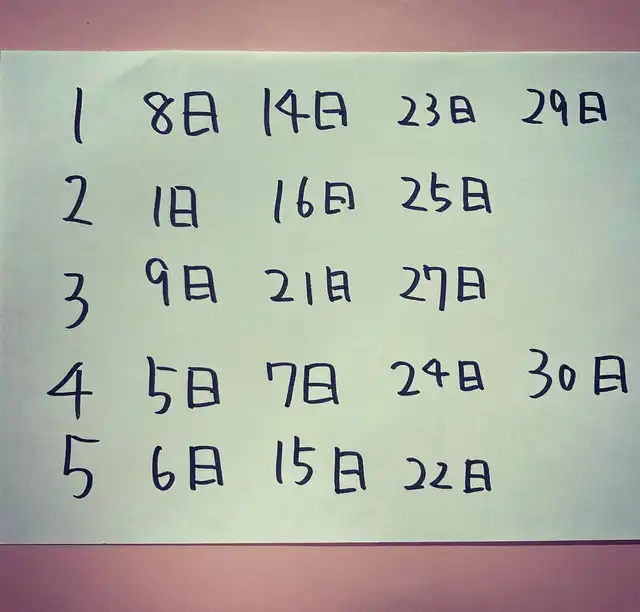 1 8日 14日 23日 29日
2 1日 16日 25日
3 9日 21日 27日
4 5日 7日 24日 30日
5 6日 15日 22日